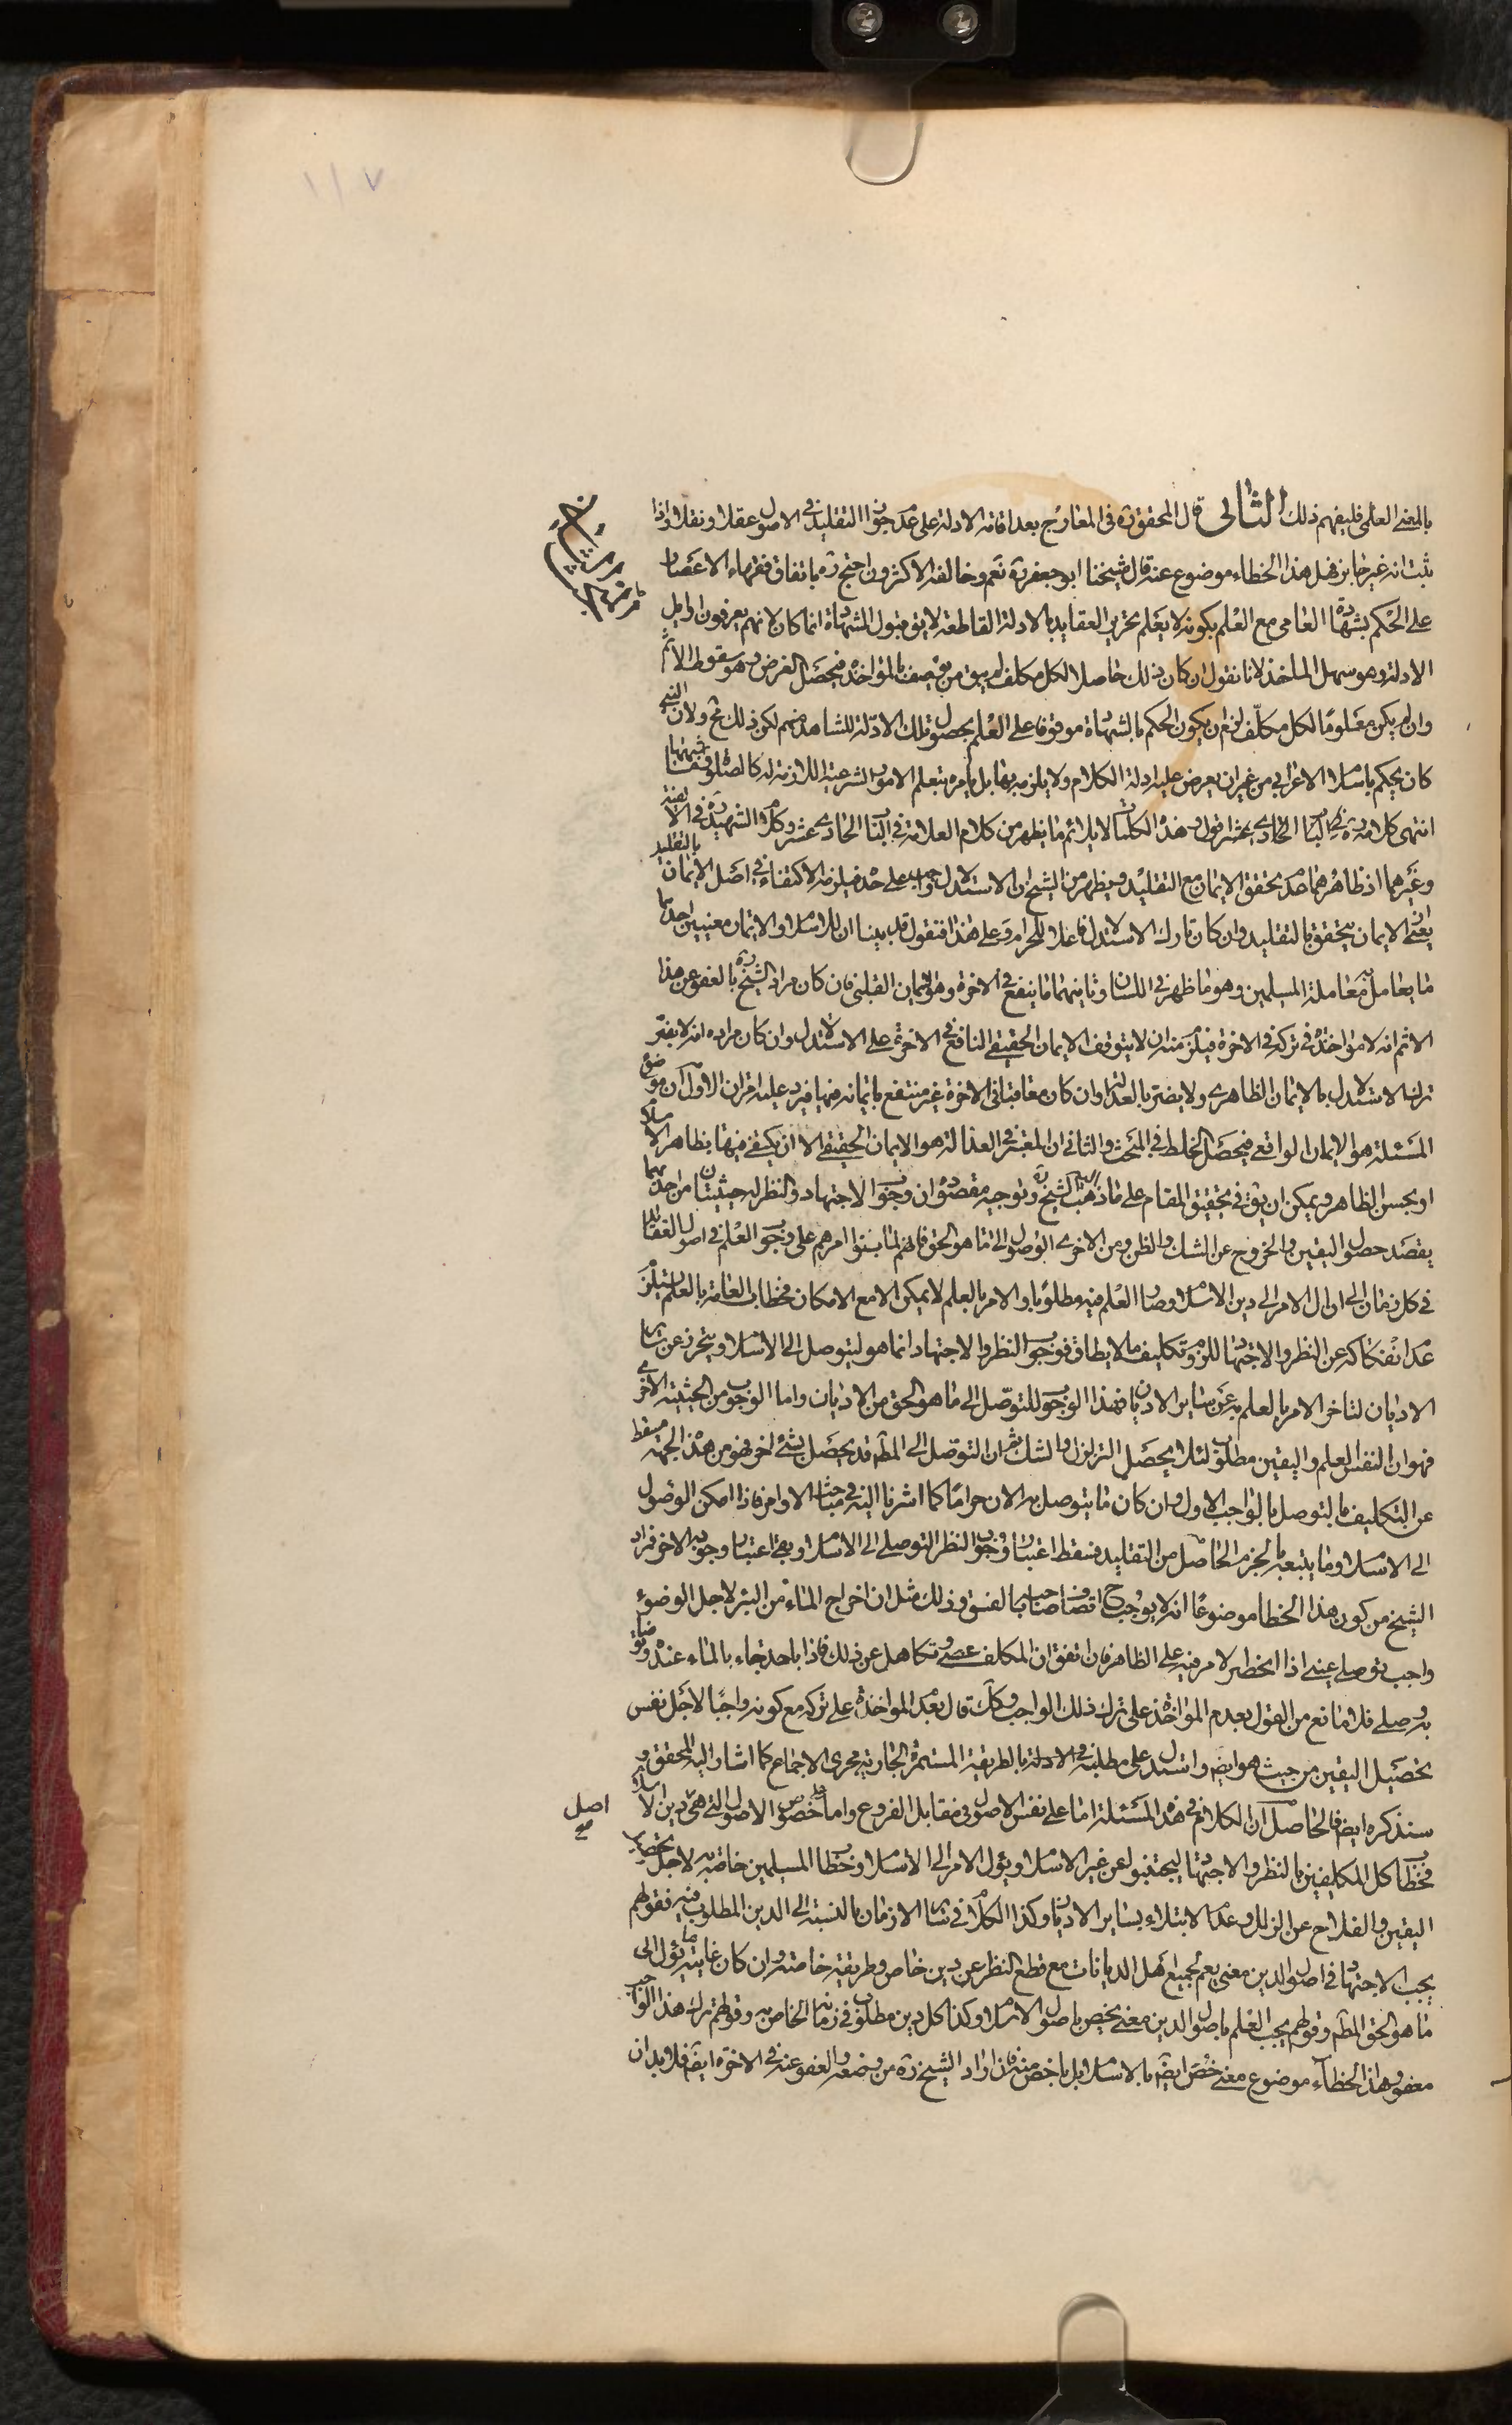 بالمعنى العلمى فليفهم ذلك الثانى قال المحقق ره فى المعارج بعد اقامة الادلة على عدم جواز التقليد فى الاصول عقلا ونقلا واذا
ثبت انه غير جايز فهل هذا الخطاء موضوع عنه قال شيخنا ابو جعفر ره نعم وخالفه الاكثرون احتج ره باتفاق فقهاء الاعصار
على الحكم بشهادة العامى مع العلم بكونه لا يعلم تحرير العقايد بالادلة القاطعة لا يق قبول الشهادة انما كان لانهم يعرفون اوايل
الادلة وهو سهل الماخذ لانا نقول ان كان ذلك حاصلا لكل مكلف لم يبق من يوصف بالمؤاخذة فيحصل الغرض وهو سقوط الاثم
وان لم يكن معلوما لكل مكلف لزم ان يكون الحكم بالشهادة موقوفا على العلم بحصول تلك الادلة للشاهد منهم لكن ذلك مح ولان النبى
كان يحكم باسلام الاعرابى من غير ان يعرض عليه ادلة الكلام ولا يلزمه بها بل يامره بتعلم الامور الشرعية اللازمة له كالصلوة وما اشبهها
انتهى كلامه ره اقول وهذا الكلام لا يلائم ما يظهر من كلام العلامة فى الباب الحادى عشر وكلام الشهيد ره فى الالفية
وغيرهما اذ ظاهرهما عدم تحقق الايمان مع التقليد ويظهر من الشيخ ان الاستدلال واجب على حدة فيلزمه الاكتفاء فى اصل الايمان بالتقليد
يعنى ان الايمان يتحقق بالتقليد وان كان تارك الاستدلال فاعلا للحرام وعلى هذا فنقول قد بينا ان للاسلام والايمان معنيين احدهما
ما يعامل به معاملة المسلمين وهو ما ظهر فى اللسان وثانيهما ما ينفع فى الاخرة وهو الايمان القلبى فان كان مراد الشيخ ره بالعفو عن هذا
الاثم انه لا مؤاخذة فى تركه فى الاخرة فيلزم منه ان لا يتوقف الايمان الحقيقى النافع فى الاخرة على الاستدلال وان كان مراده انه لا يضر
ترك الاستدلال بالايمان الظاهرى ولا يضر بالعدالة وان كان معاقبا فى الاخرة غير منتفع بايمانه فيها فيرد عليه امران الاول ان موضوع
المسئلة هو الايمان الواقعى فيحصل الخلط فى المبحث والثانى ان المعتبر فى العدالة هو الايمان الحقيقى الا ان يكتفى فيها بظاهر الاسلام
او بحسن الظاهر ويمكن ان يق فى تحقيق المقام على ما ذهب اليه الشيخ ره وتوجيه مقصوده ان وجوب الاجتهاد والنظر له حيثيتان من احديهما
يقصد حصول اليقين والخروج عن الشك والظن ومن الاخرى الوصول الى ما هو الحق فانهم لما بنوا امرهم على وجوب العلم فى اصول العقايد
فى كل زمان الى ان ال الامر الى دين الاسلام وصار العلم فيه مطلوبا والامر بالعلم لا يمكن الا مع الامكان فخطاب العامة بالعلم يستلزم
عدم انفكاكه عن النظر والاجتهاد للزوم تكليف ما لا يطاق فوجوب النظر والاجتهاد انما هو ليتوصل الى الاسلام ويتحرز عن ساير
الاديان لتاخر الامر بالعلم به عن ساير الاديان فهذا الوجوب للتوصل الى ما هو الحق من الاديان واما الوجوب من الحيثية الاخرى
فهو ان النفس العلم واليقين مطلوب لئلا يحصل التزلزل والشك ثم ان التوصل الى المط قد يحصل بشئ اخر فهو من هذه الجهة مسقط
عن التكليف بالتوصل بالواجب الاول وان كان ما يتوصل به الان حراما كما اشرنا اليه فى مباحث الاوامر فاذا امكن الوصول
الى الاسلام وما يتبعه بالجزم الحاصل من التقليد فسقط اعتبار وجوب النظر التوصلى الى الاسلام وبقى اعتبار وجوبه الاخر فمراد
الشيخ من كون هذا الخطا موضوعا انه لا يوجب ح اتصاف صاحبه بالفسق وذلك مثل ان اخراج الماء من البئر لاجل الوضوء
واجب توصلى عينى اذا انحصر الامر فيه على الظاهر فان اتفق ان المكلف عصى وتكاهل عن ذلك فاذا باحد جاء بالماء عنده وتوضأ
به وصلى فلا مانع من القول بعدم المؤاخذة على ترك ذلك الواجب وكك قال بعدم المؤاخذة على تركه مع كونه واجبا لاجل نفس
تحصيل اليقين من حيث هو ايض واستدل على مطلبه فى الادلة بالطريقة المستمرة الجارية مجرى الاجماع كما اشار اليه المحقق و
سنذكره ايض فالحاصل ان الكلام فى هذه المسئلة اما على نفس الاصول فى مقابل الفروع واما على خصوص الاصول التى هى دين الاسلام
اصل
فخطاب كل المكلفين بالنظر والاجتهاد ليجتنبوا عن غير الاسلام ويؤل الامر الى الاسلام وخطاب المسلمين خاصة به لاجل تحصيل
اليقين والفلاح عن الزلل وعدم الابتلاء بساير الاديان وكذا الكلام فى ساير الازمان بالنسبة الى الدين المطلوب فيه فقولهم
يجب الاجتهاد فى اصول الدين معنى يعم لجميع اهل الديانات مع قطع النظر عن دين خاص وطريقة خاصة وان كان غايته ما يؤل الى
ما هو الحق المط وقولهم يجب العلم باصول الدين معنى يخص باصول الاسلام وكذا كل دين مطلوب فى زمانه الخاص به وقولهم ترك هذا الواجب
معفو وهذا الخطاء موضوع معنى خص ايض بالاسلام بل باخص منه فان اراد الشيخ ره من وضعه والعفو عنه فى الاخرة ايض فلا بد ان